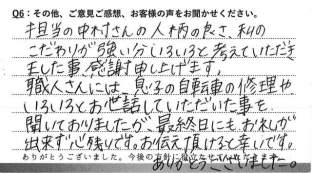 Q6：その他、ご意見ご感想、お客様の声をお聞かせください。
担当の中村さんの人柄の良さ、私の
こだわりが強い分いろいろと考えていただき
ました事、感謝申し上げます。
職人さんには、息子の自転車の修理や
いろいろとお世話していただいた事も
聞いておりましたが、最終日にも、お礼が
出来ず心残りです。お伝え頂けると幸いです。
ありがとうございました。今後の方針に役立たせていただきます。
ありがとうございました。